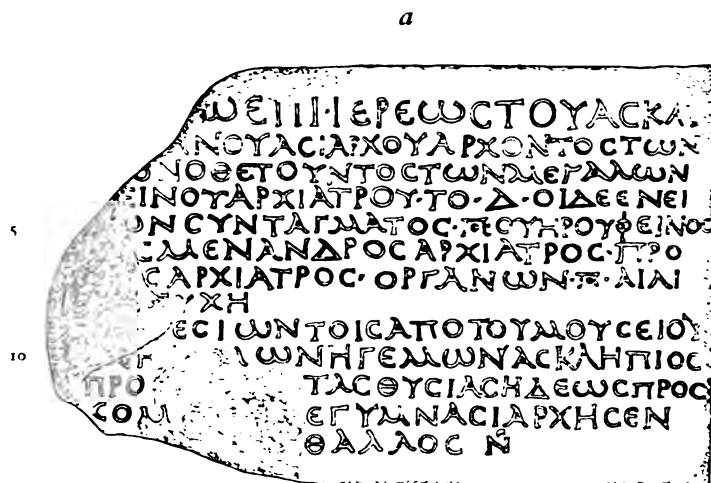 a
ΕΠΙ·ΙΕΡΕΩϹΤΟΥΑϹΚΛ
ΝΟΥΑϹΙΑΡΧΟΥΑΡΧΟΝΤΟϹΤΩΝ
ΝΟΘΕΤΟΥΝΤΟϹΤΩΝΜΕΓΑΛΩΝ
ΕΙΝΟΥΑΡΧΙΑΤΡΟΥ·ΤΟ·Δ·ΟΙΔΕΕΝΕΙ
5 ΩΝϹΥΝΤΑΓΜΑΤΟϹ·Π·ϹΥΗΡΟΥΦΕΙΝΟϹ
ϹΜΕΝΑΝΔΡΟϹΑΡΧΙΑΤΡΟϹ·ΠΡΟ
ϹΑΡΧΙΑΤΡΟϹ·ΟΡΓΑΝΩΝ·Π·ΑΙΛΙ
ΥΧΗ
ΕϹΙΩΝΤΟΙϹΑΠΟΤΟΥΜΟΥϹΕΙΟΥ
10 ΙΩΝΗΓΕΜΩΝΑϹΚΛΗΠΙΟϹ
ΠΡΟ ΤΑϹΘΥϹΙΑϹΗΔΕΩϹΠΡΟϹ
ϹΟΜ ΕΓΥΜΝΑϹΙΑΡΧΗϹΕΝ
ΘΑΛΛΟϹ Ν